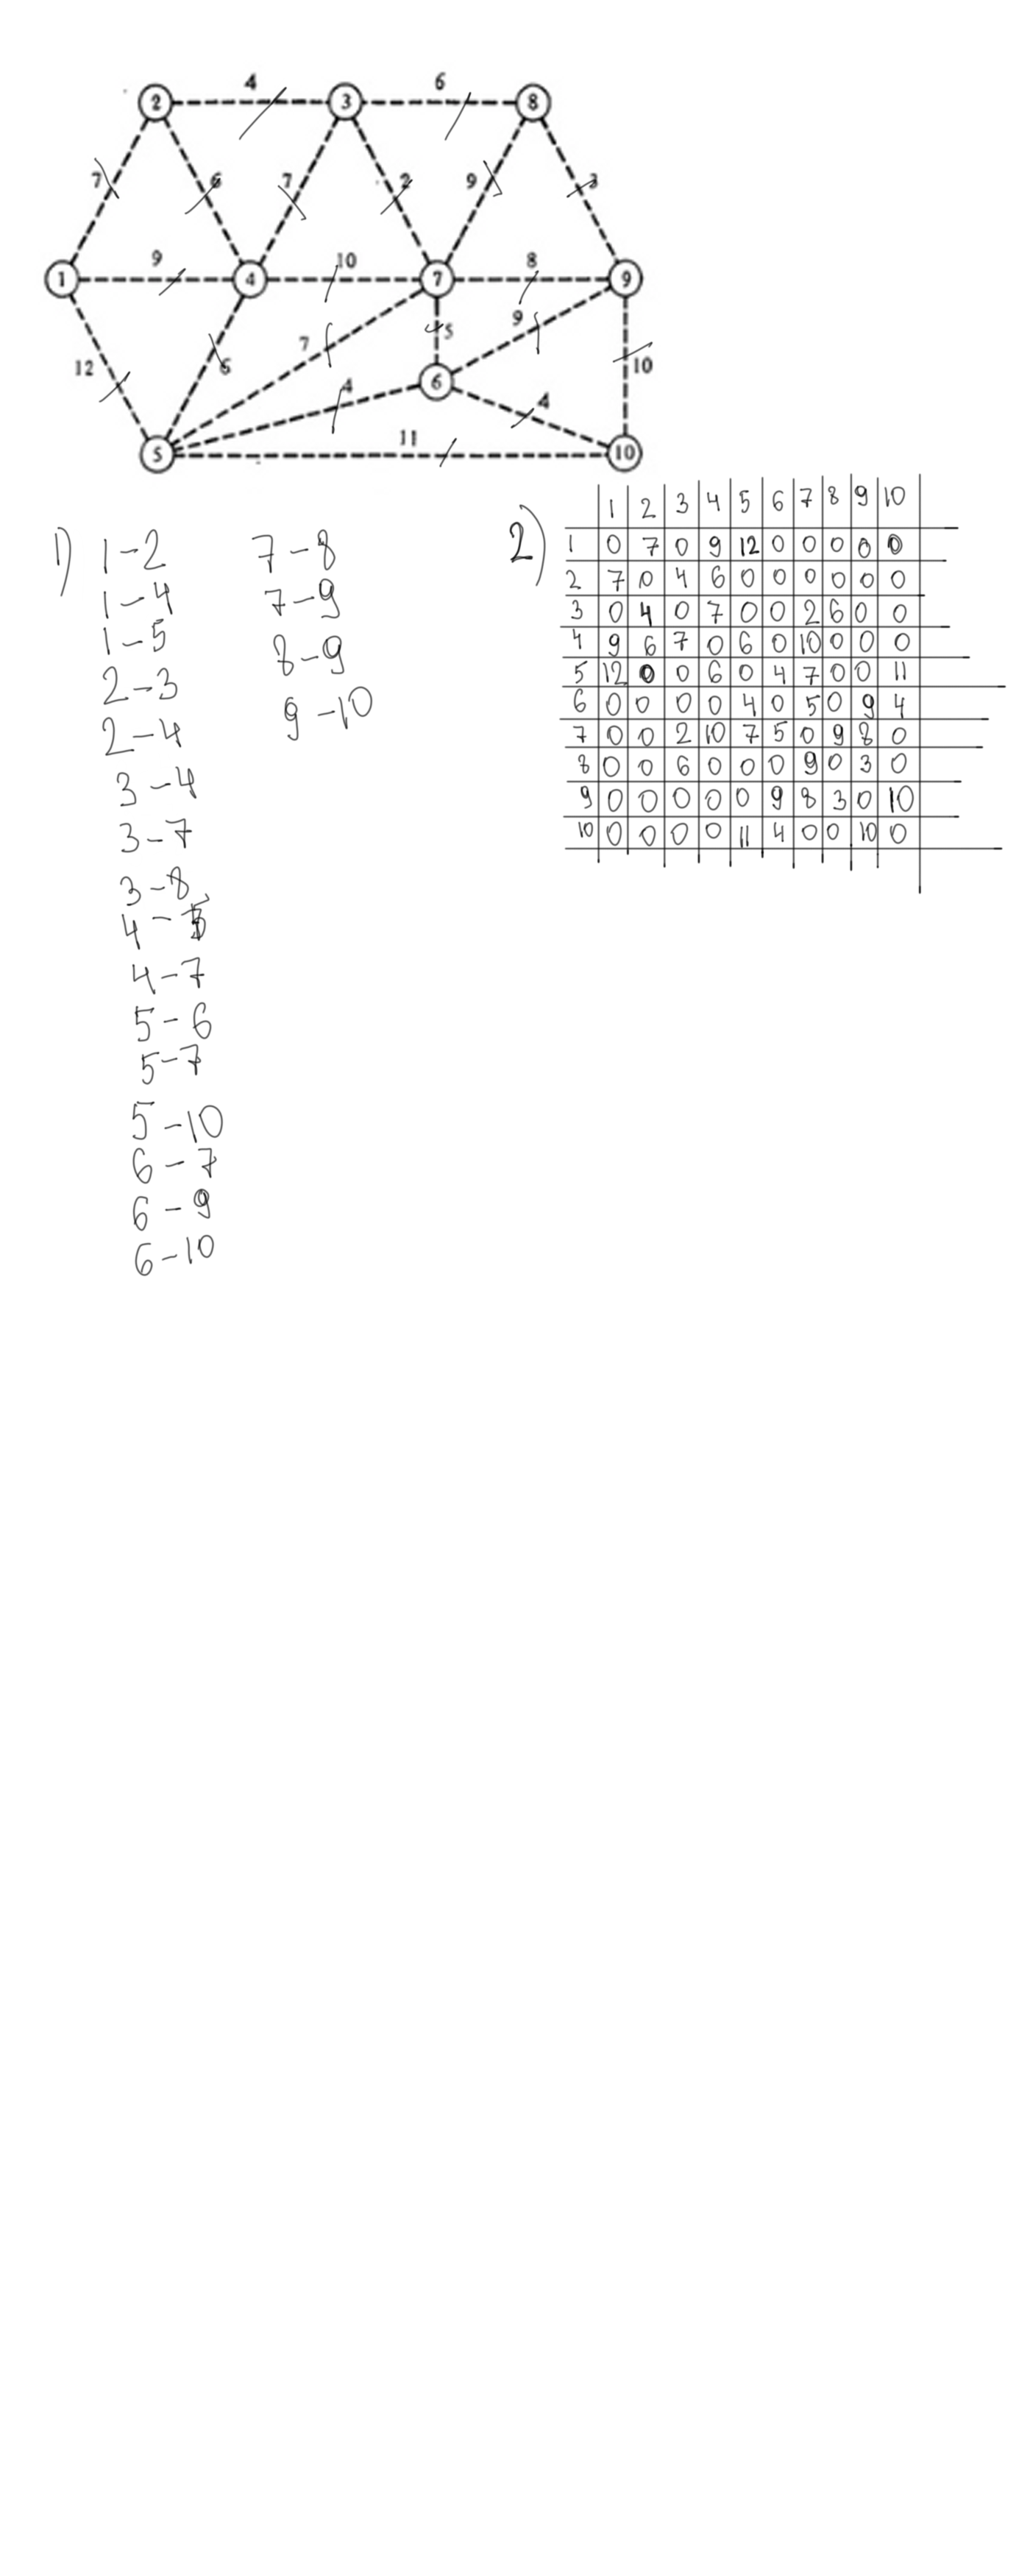 4 6
2 3 8
7 6 7 2 9 3
9 10 8
1 4 7 9
12 6 7 5 9 10
6
4 4
11
5 10
1) 1-2
1-4
1-5
2-3
2-4
3-4
3-7
3-8
4-5
4-7
5-6
5-7
5-10
6-7
6-9
6-10
7-8
7-9
8-9
9-10
2) 1 2 3 4 5 6 7 8 9 10
1 0 7 0 9 12 0 0 0 0 0
2 7 0 4 6 0 0 0 0 0 0
3 0 4 0 7 0 0 2 6 0 0
4 9 6 7 0 6 0 10 0 0 0
5 12 0 0 6 0 4 7 0 0 11
6 0 0 0 0 4 0 5 0 9 4
7 0 0 2 10 7 5 0 9 8 0
8 0 0 6 0 0 0 9 0 3 0
9 0 0 0 0 0 9 8 3 0 10
10 0 0 0 0 11 4 0 0 10 0